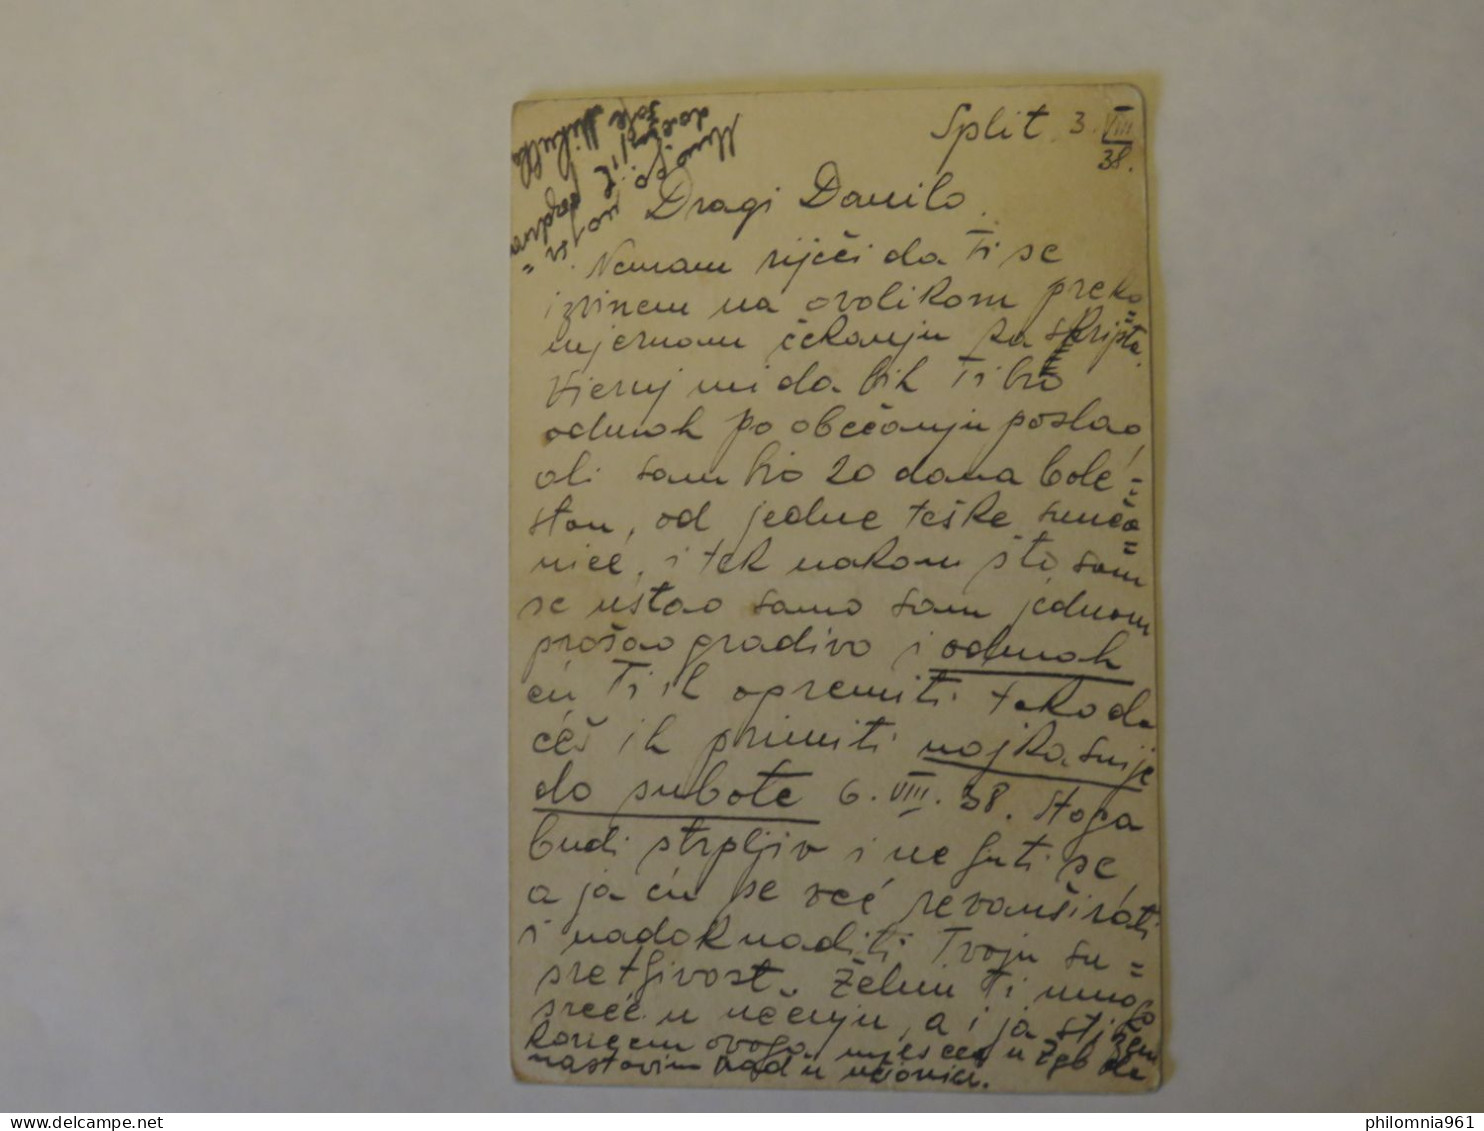 Split 3. VIII
38.
Dragi Danilo.
Nemam riječi da Ti se
izvinem na ovolikom preko
mjernom čekanju za skripta.
Vjeruj mi da bih Ti bio
odmah po obećanju poslao,
ali sam bio 20 dana bole=
stan, od jedne teške sunča=
nice, i tek nakon što sam
se ustao samo sam jednom
prošao gradivo i odmah
ću Ti ih opremiti tako da
ćeš ih primiti najkasnije
do subote 6. VIII. 38. Stoga
budi strpljiv i ne ljuti se,
a ja ću se već revanširati
i nadoknaditi Tvoju su=
sretljivost. Želim Ti mnogo
sreće u učenju, a i ja stižem
koncem ovoga mjeseca u Zgb da
nastavim rad u učionici.
Mnogo
pozdrava
philomnia961